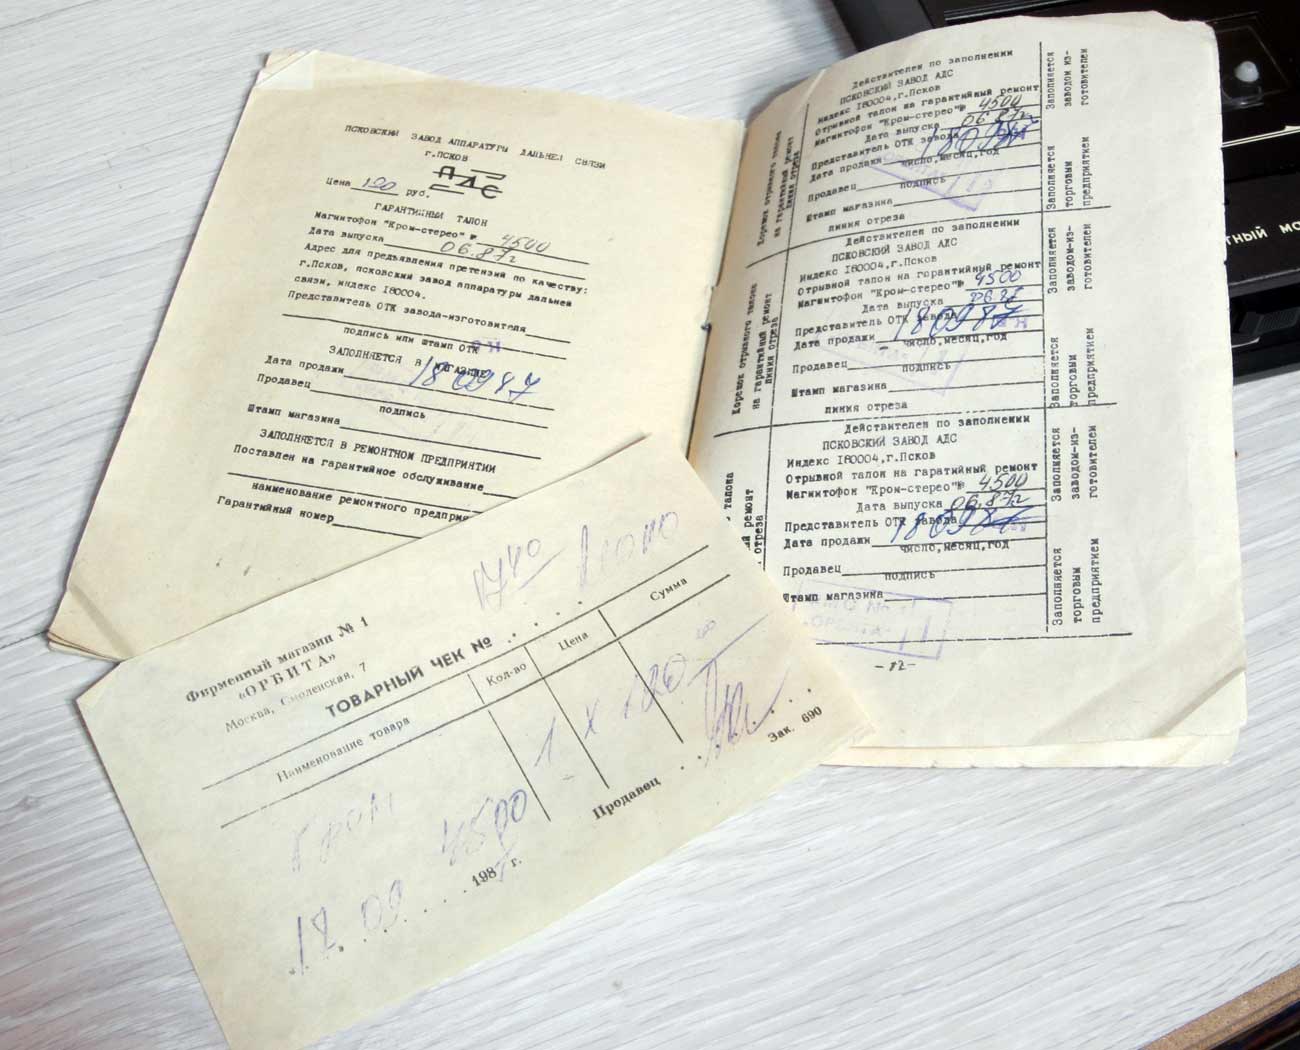 ПСКОВСКИЙ ЗАВОД АППАРАТУРЫ ДАЛЬНЕЙ СВЯЗИ
г.ПСКОВ
АДС
Цена 120 руб.
ГАРАНТИЙНЫЙ ТАЛОН
Магнитофон "Кром-стерео" № 4500
Дата выпуска 06.87г
Адрес для предъявления претензий по качеству:
г.Псков, псковский завод аппаратуры дальней
связи, индекс 180004.
Представитель ОТК завода-изготовителя
подпись или штамп ОТК
ЗАПОЛНЯЕТСЯ В МАГАЗИНЕ
Дата продажи 180987
Продавец
подпись
Штамп магазина
ЗАПОЛНЯЕТСЯ В РЕМОНТНОМ ПРЕДПРИЯТИИ
Поставлен на гарантийное обслуживание
наименование ремонтного предприя
Гарантийный номер
Фирменный магазин № 1
«ОРБИТА»
Москва, Смоленская, 7
ТОВАРНЫЙ ЧЕК №
Наименование товара Кол-во Цена Сумма
Кром 4500 1 х 120
17 09 1987 г.
Продавец
Зак. 690
Корешок отрывного талона
на гарантийный ремонт
линия отреза
Действителен по заполнении
ПСКОВСКИЙ ЗАВОД АДС
Индекс 180004,г.Псков
Отрывной талон на гарантийный ремонт
Магнитофон "Кром-стерео"№ 4500
Дата выпуска 06.87г
Представитель ОТК завода
Дата продажи 180987
число,месяц,год
Продавец
подпись
Штамп магазина
линия отреза
Заполняется
заводом из-
готовителем
Заполняется
торговым
предприятием
Корешок отрывного талона
на гарантийный ремонт
линия отреза
Действителен по заполнении
ПСКОВСКИЙ ЗАВОД АДС
Индекс 180004,г.Псков
Отрывной талон на гарантийный ремонт
Магнитофон "Кром-стерео"№ 4500
Дата выпуска 06.87
Представитель ОТК завода
Дата продажи 180987
число,месяц,год
Продавец
подпись
Штамп магазина
линия отреза
Заполняется
заводом-из-
готовителем
Заполняется
торговым
предприятием
талона
ый ремонт
отреза
Действителен по заполнении
ПСКОВСКИЙ ЗАВОД АДС
Индекс 180004,г.Псков
Отрывной талон на гаратийный ремонт
Магнитофон "Кром-стерео"№ 4500
Дата выпуска 06.87г
Представитель ОТК завода
Дата продажи 180987
число,месяц,год
Продавец
подпись
Штамп магазина
Заполняется
заводом-из-
готовителем
Заполняется
торговым
предприятием
-12-
тный мо